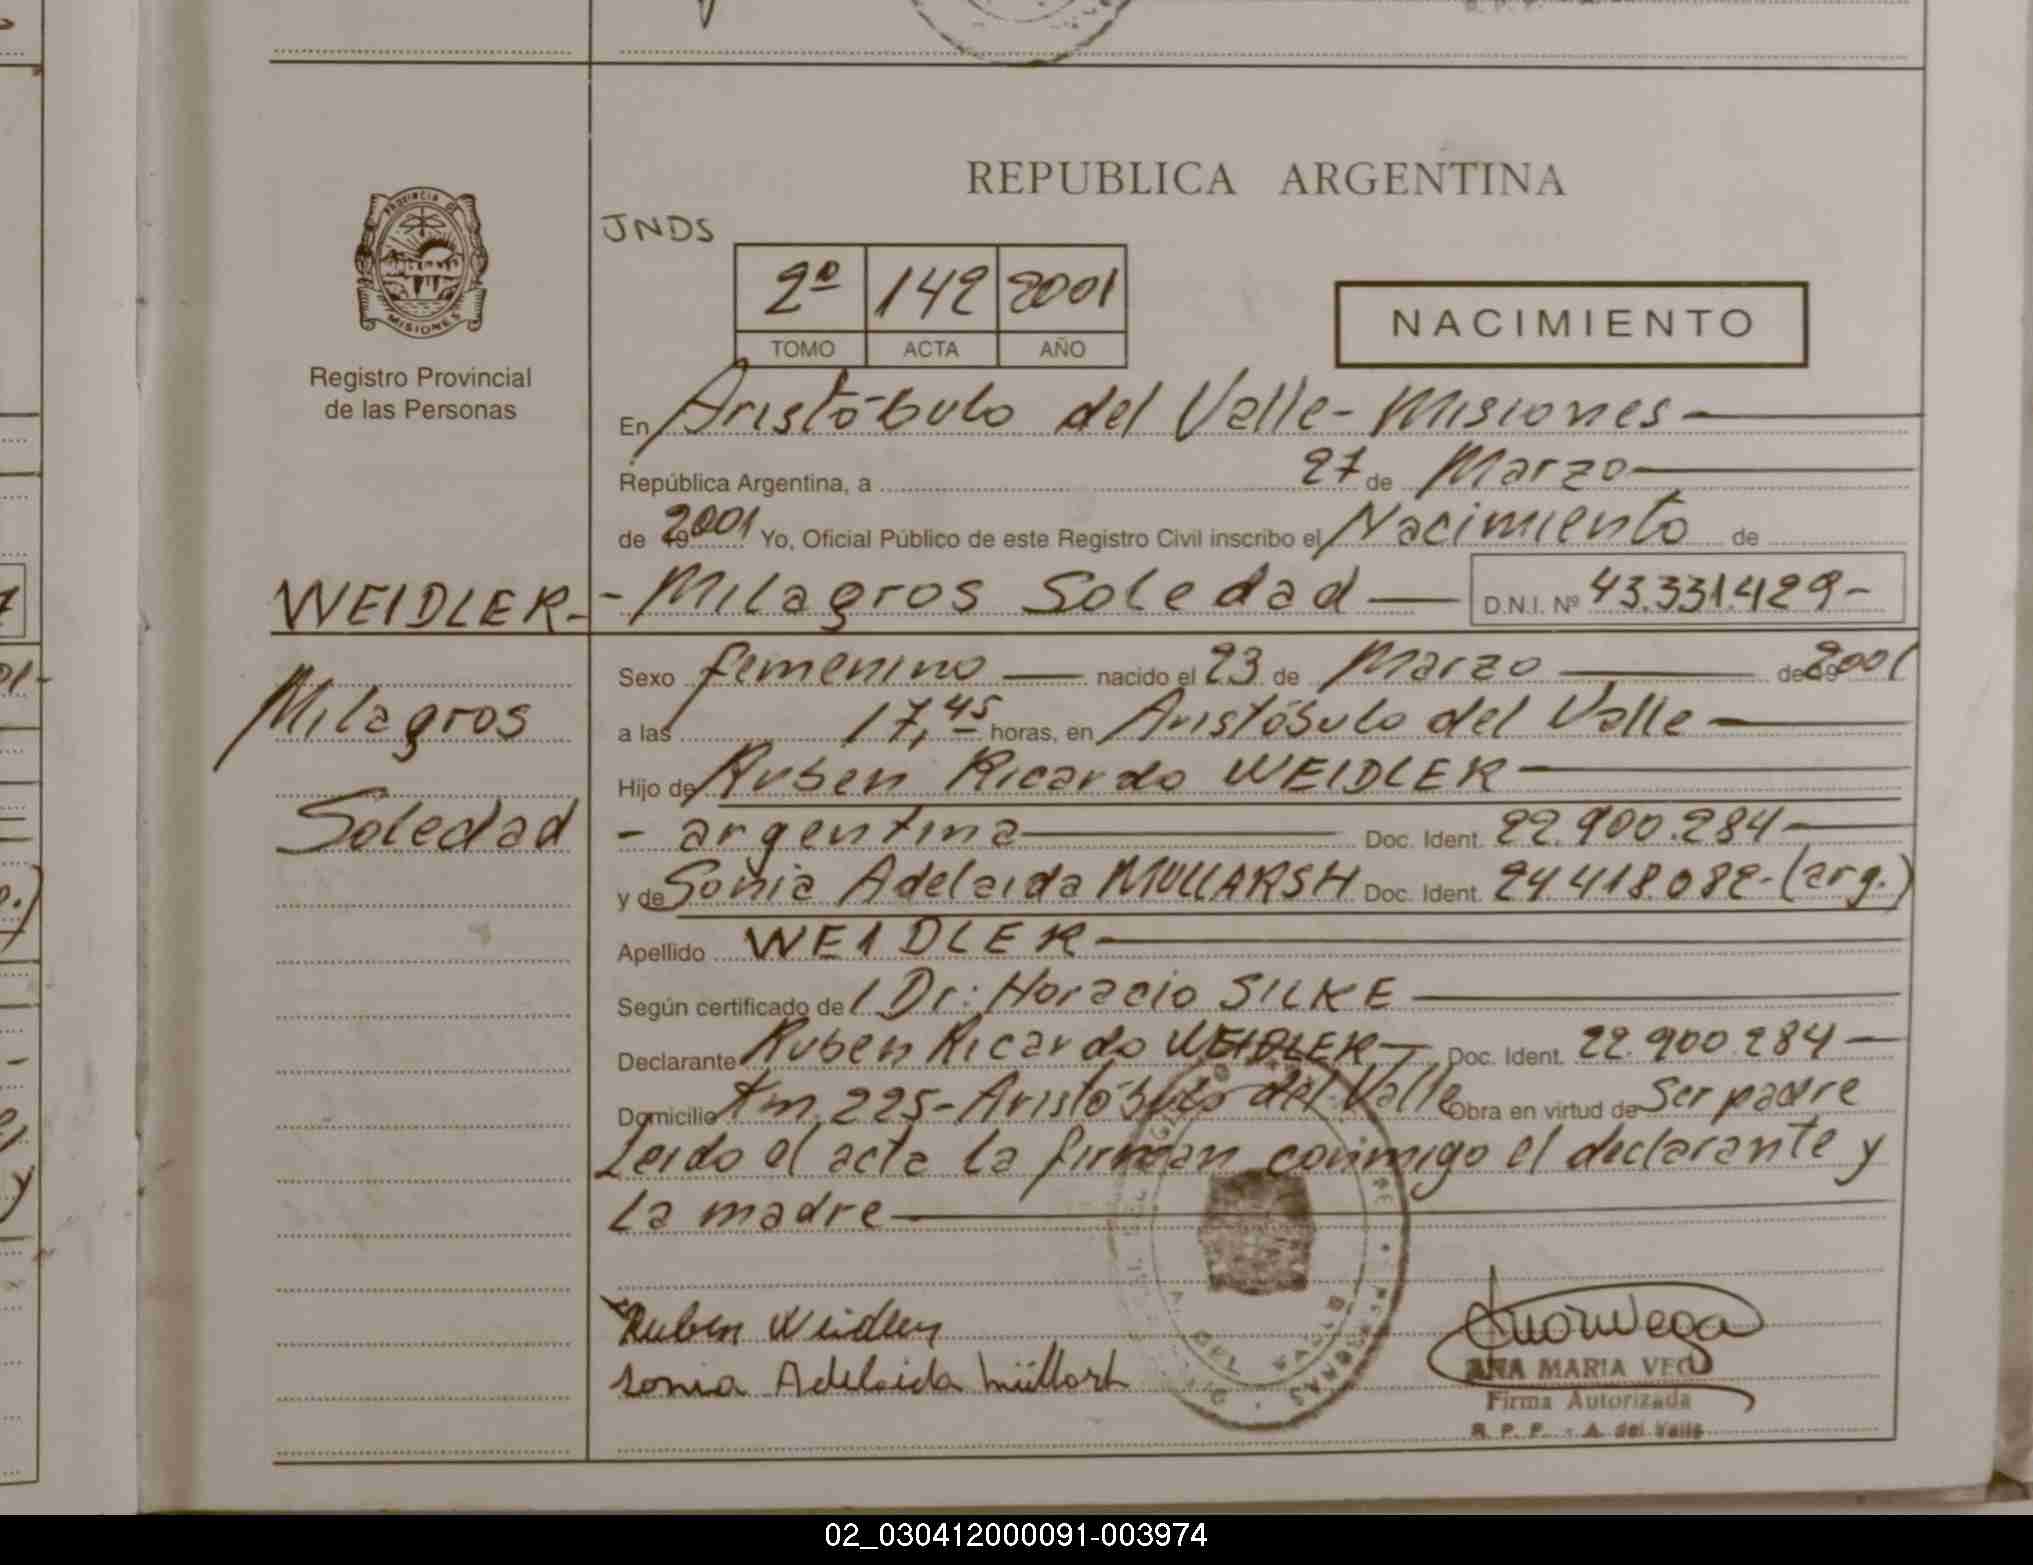 REPUBLICA ARGENTINA
JNDS
PROVINCIA DE
MISIONES
Registro Provincial
de las Personas
2º 142 2001
TOMO ACTA AÑO
NACIMIENTO
En Aristóbulo del Valle - Misiones
República Argentina, a 27 de Marzo
de 2001 Yo, Oficial Público de este Registro Civil inscribo el Nacimiento de
WEIDLER - - Milagros Soledad D.N.I. Nº 43.331.429-
Milagros
Soledad
Sexo femenino nacido el 23 de Marzo de 2001
a las 17,45 horas, en Aristóbulo del Valle
Hijo de Ruben Ricardo WEIDLER
- argentina Doc. Ident. 22.900.284
y de Sonia Adelaida MULLARSH Doc. Ident. 24.418.082- (arg.)
Apellido WEIDLER
Según certificado de Dr: Horacio SILKE
Declarante Ruben Ricardo WEIDLER Doc. Ident. 22.900.284
Domicilio Km. 225 - Aristóbulo del Valle Obra en virtud de Ser padre
Leido el acta la firman conmigo el declarante y
la madre
Ruben Weidler
Sonia Adelaida
ANA MARIA VEGA
Firma Autorizada
R. P. P. - A. del Valle
02_030412000091-003974